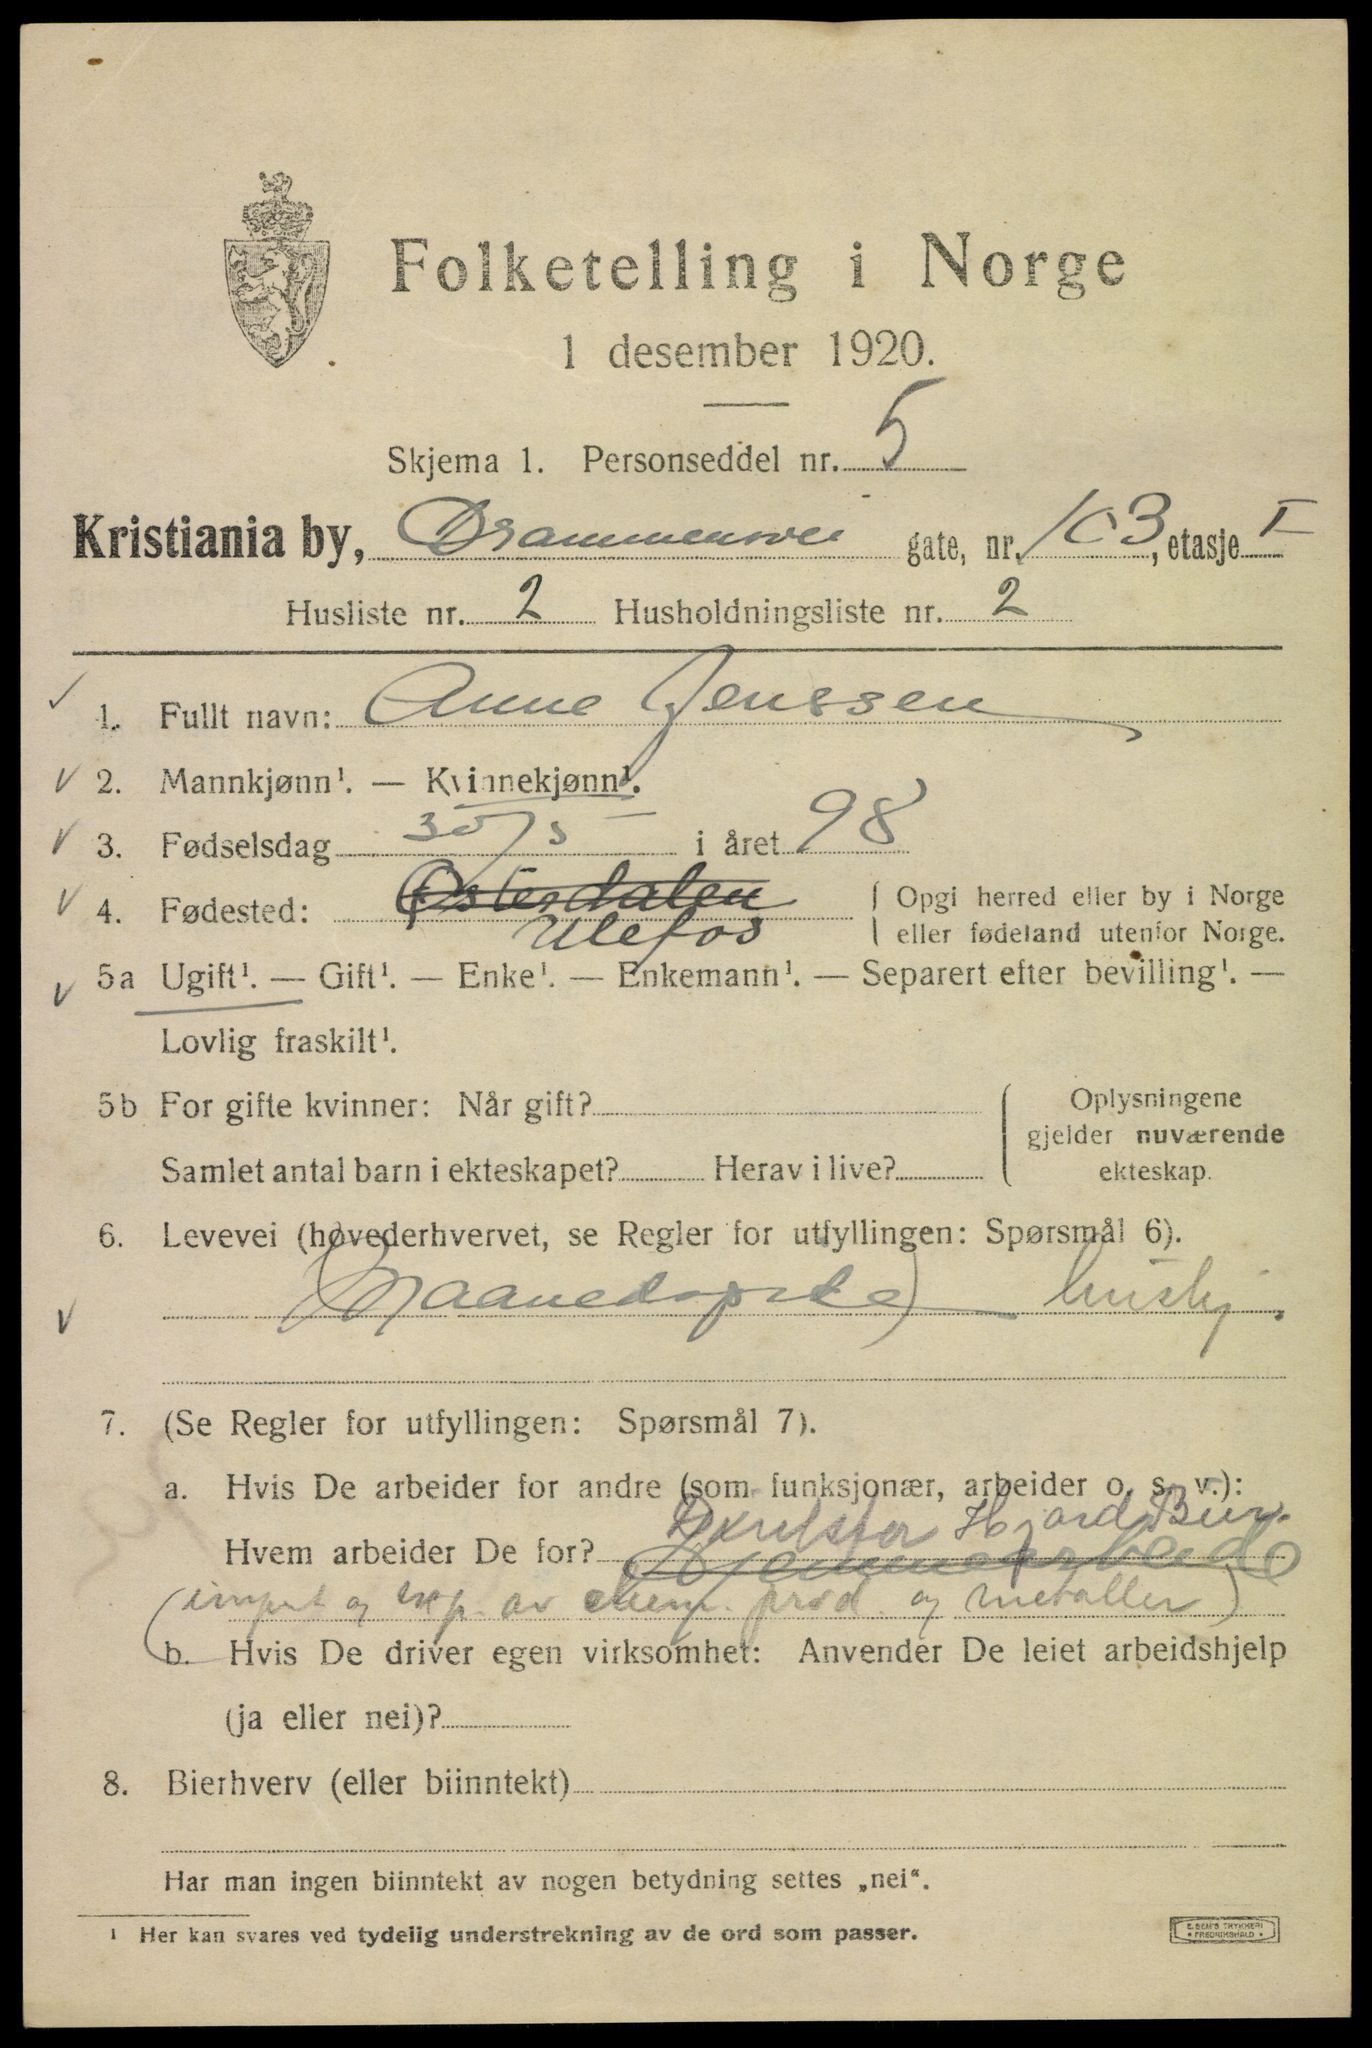 Folketelling i Norge
1 desember 1920.
Skjema 1. Personseddel nr. 5
Kristiania by, Drammensvei gate, nr. 103, etasje I
Husliste nr. 2 Husholdningsliste nr. 2
1. Fullt navn: Anne Jenssen
2. Mannkjønn¹. — Kvinnekjønn¹.
3. Fødselsdag 30/5 i året 98
4. Fødested: Østerdalen Opgi herred eller by i Norge
Ulefos eller fødeland utenfor Norge.
5a Ugift¹. — Gift¹. — Enke¹. — Enkemann¹. — Separert efter bevilling¹. —
Lovlig fraskilt¹.
5b For gifte kvinner: Når gift? Oplysningene
gjelder nuværende
Samlet antal barn i ekteskapet? Herav i live? ekteskap.
6. Levevei (hovederhvervet, se Regler for utfyllingen: Spørsmål 6).
(Maanedspike) hushj.
7. (Se Regler for utfyllingen: Spørsmål 7).
a. Hvis De arbeider for andre (som funksjonær, arbeider o. s. v.):
Hjord
Hvem arbeider De for? Hjemmearbeide
(import og exp. av chem. prod. og metaller)
b. Hvis De driver egen virksomhet: Anvender De leiet arbeidshjelp
(ja eller nei)?
8. Bierhverv (eller biinntekt)
Har man ingen biinntekt av nogen betydning settes „nei“.
¹ Her kan svares ved tydelig understrekning av de ord som passer.
E. SEM'S TRYKKERI
FREDRIKSHALD